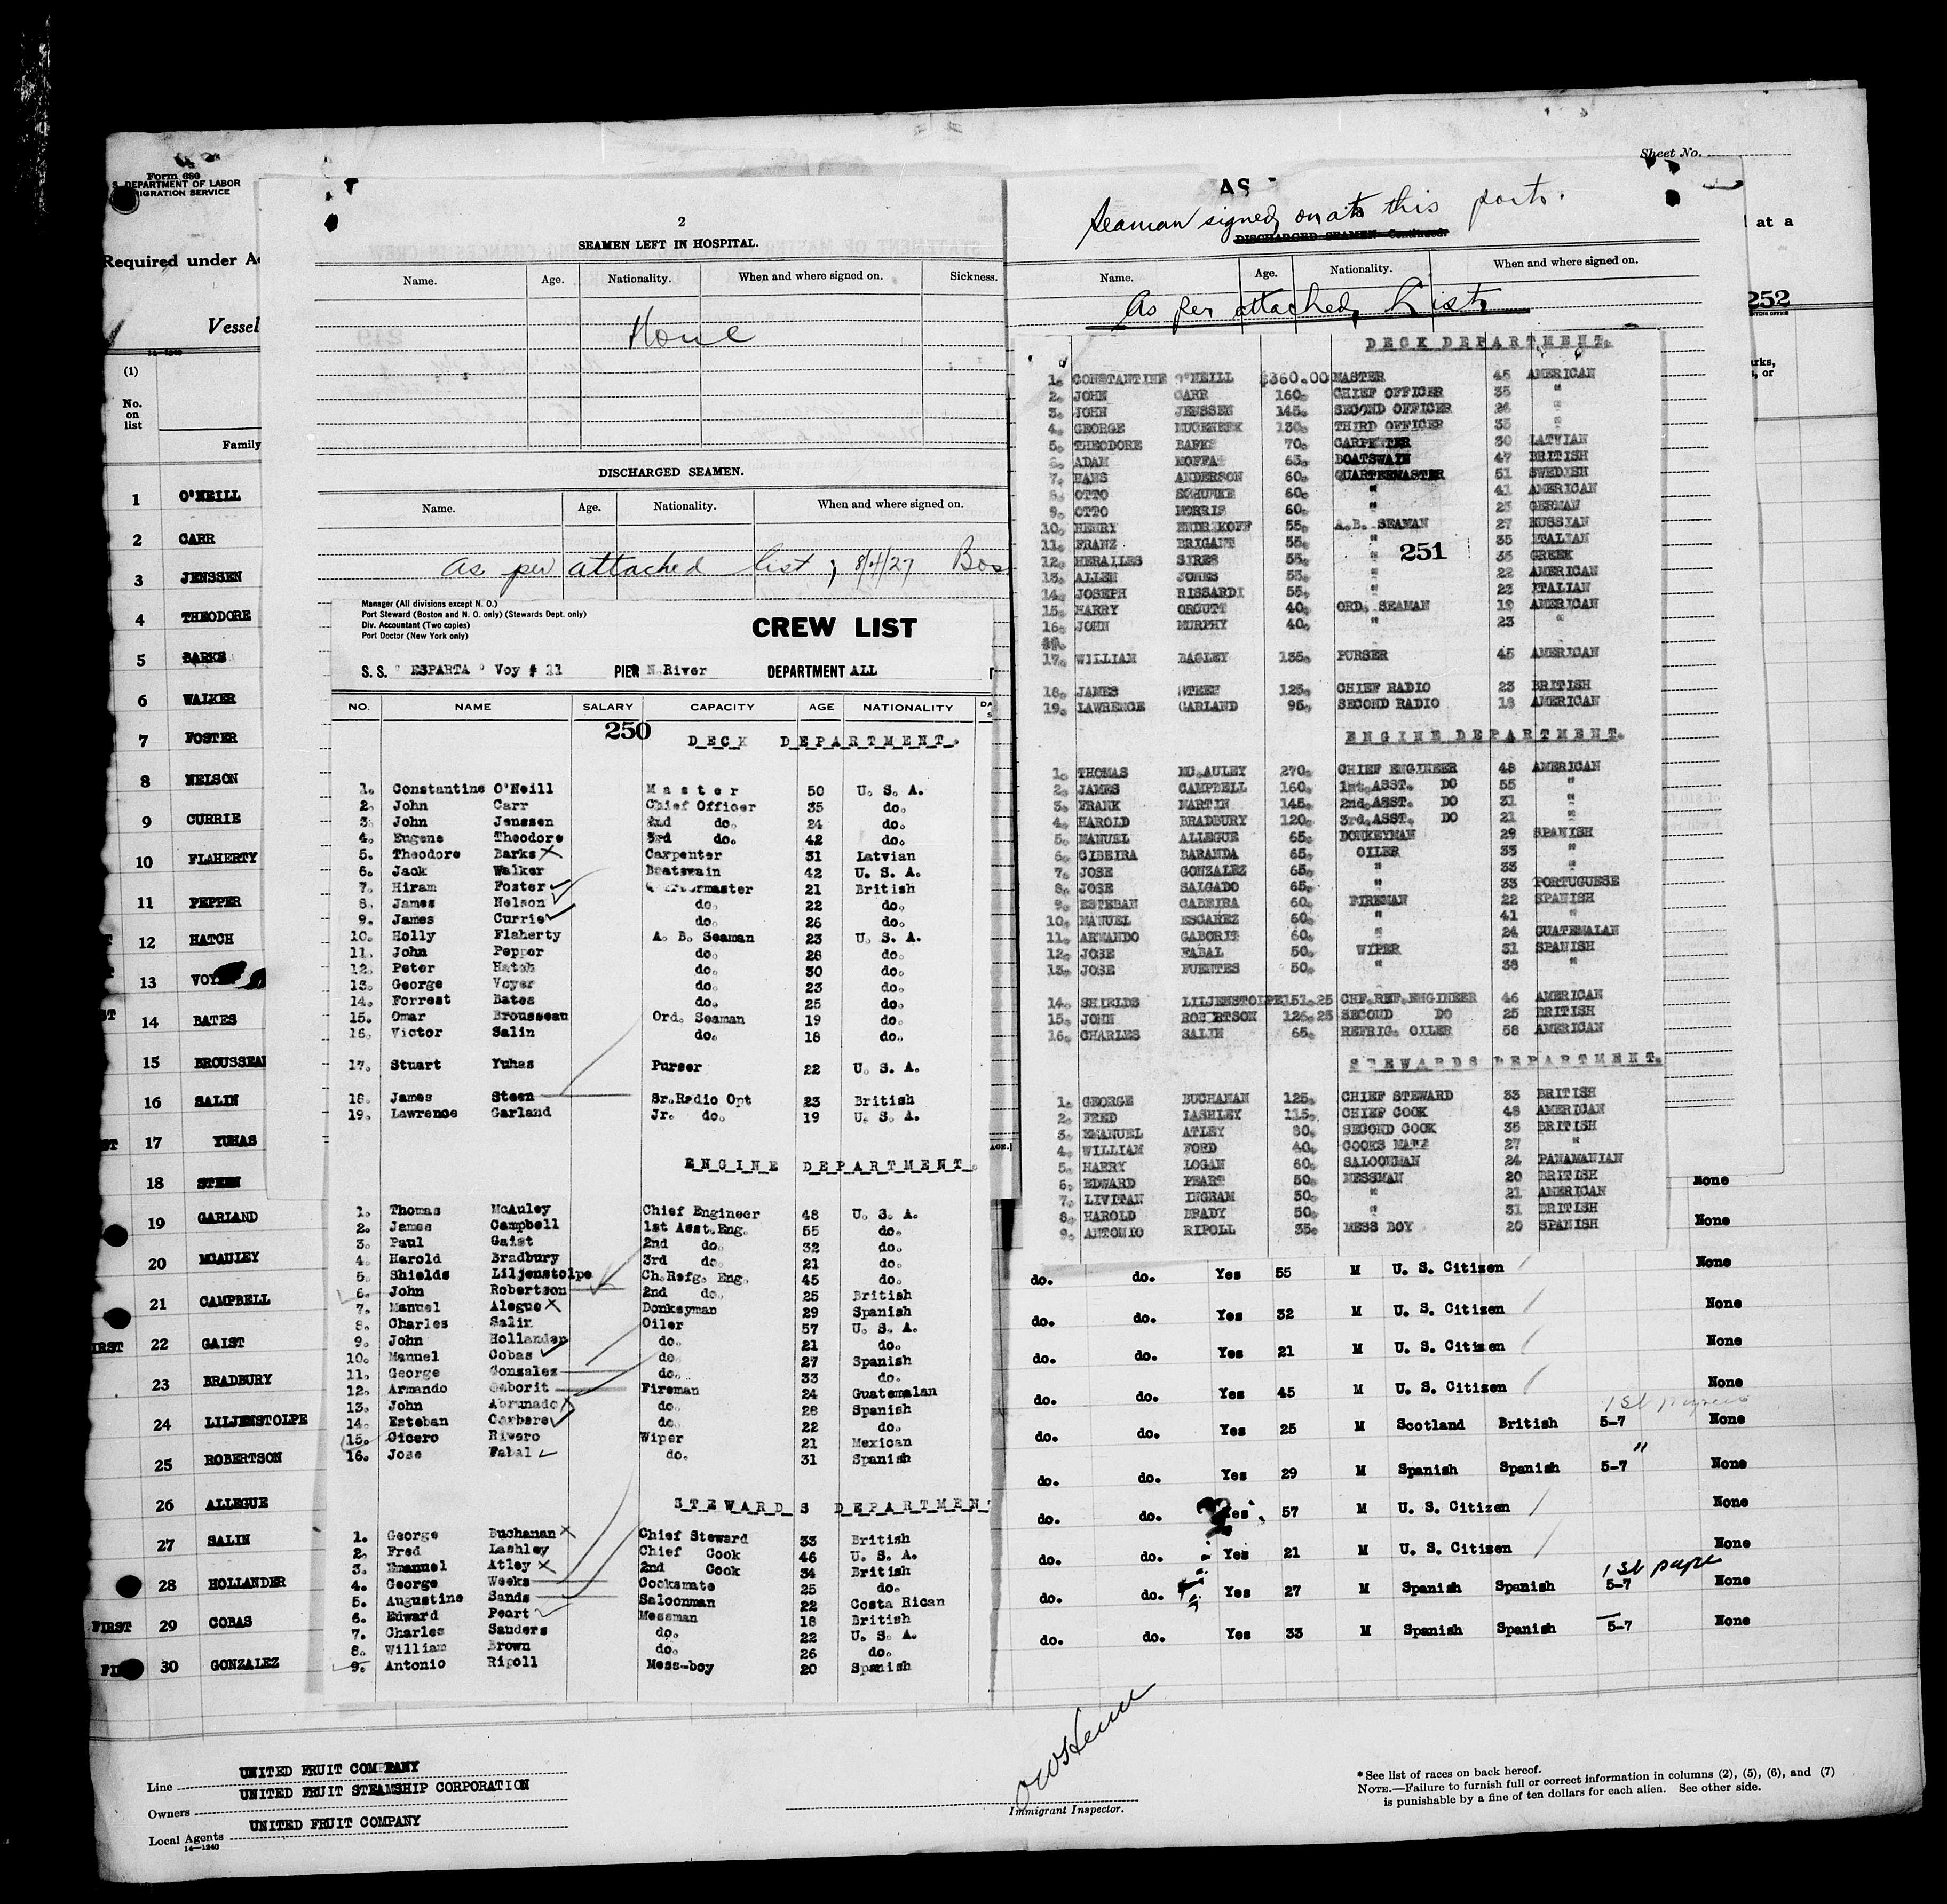 Sheet No.
Form 680
S. DEPARTMENT OF LABOR
IGRATION SERVICE
Required under A
Vessel
14—1240
(1)
No. on list
Family
1 O'NEILL
2 CARR
3 JENSSEN
4 THEODORE
5 BARKS
6 WALKER
7 FOSTER
8 NELSON
9 CURRIE
10 FLAHERTY
11 PEPPER
12 HATCH
13 VOY
14 BATES
15 BROUSSEAU
16 SALIN
17 YUHAS
18 STEEN
19 GARLAND
20 MCAULEY
21 CAMPBELL
IRST 22 GAIST
23 BRADBURY
24 LILJENSTOLPE
25 ROBERTSON
26 ALLEGUE
27 SALIN
28 HOLLANDER
FIRST 29 COBAS
30 GONZALEZ
2
SEAMEN LEFT IN HOSPITAL.
Name. Age. Nationality. When and where signed on. Sickness.
None
DISCHARGED SEAMEN.
Name. Age. Nationality. When and where signed on.
As per attached list; 8/4/27 Bos
Manager (All divisions except N. O.)
Port Steward (Boston and N. O. only) (Stewards Dept. only)
Div. Accountant (Two copies)
Port Doctor (New York only)
CREW LIST
S. S. " ESPARTA " Voy # 31 PIER N River DEPARTMENT ALL
NO. NAME SALARY CAPACITY AGE NATIONALITY
250
DECK DEPARTMENT.
1. Constantine O'Neill Master 50 U. S. A.
2. John Carr Chief Officer 35 do.
3. John Jenssen 2nd do. 24 do.
4. Eugene Theodore 3rd do. 42 do.
5. Theodore Barks Carpenter 31 Latvian
6. Jack Walker Boatswain 42 U. S. A.
7. Hiram Foster Quartermaster 21 British
8. James Nelson do. 22 do.
9. James Currie do. 26 do.
10. Holly Flaherty A. B. Seaman 23 U. S. A.
11. John Pepper do. 28 do.
12. Peter Hatch do. 30 do.
13. George Voyer do. 23 do.
14. Forrest Bates do. 25 do.
15. Omar Brousseau Ord. Seaman 19 do.
16. Victor Salin do. 18 do.
17. Stuart Yuhas Purser 22 U. S. A.
18. James Steen Sr.Radio Opt 23 British
19. Lawrence Garland Jr. do. 19 U. S. A.
ENGINE DEPARTMENT.
1. Thomas McAuley Chief Engineer 48 U. S. A.
2. James Campbell 1st Asst.Eng. 55 do.
3. Paul Gaist 2nd do. 32 do.
4. Harold Bradbury 3rd do. 21 do.
5. Shields Liljenstolpe Ch.Refg. Eng. 45 do.
6. John Robertson 2nd do. 25 British
7. Manuel Alegue Donkeyman 29 Spanish
8. Charles Salin Oiler 57 U. S. A.
9. John Hollander do. 21 do.
10. Manuel Cobas do. 27 Spanish
11. George Gonzalez do. 33 do.
12. Armando Gaborit Fireman 24 Guatemalan
13. John Abrunado do. 28 Spanish
14. Esteban Carbere do. 22 do.
15. Cicero Rivero Wiper 21 Mexican
16. Jose Fabal do. 31 Spanish
STEWARDS DEPARTMENT
1. George Buchanan Chief Steward 33 British
2. Fred Lashley Chief Cook 46 U. S. A.
3. Emanuel Atley 2nd Cook 34 British
4. George Weeks Cooksmate 25 do.
5. Augustine Sands Saloonman 22 Costa Rican
6. Edward Peart Messman 18 British
7. Charles Sanders do. 22 U. S. A.
8. William Brown do. 26 do.
9. Antonio Ripoll Mess-boy 20 Spanish
AS
Seaman signed on at this port.
DISCHARGED SEAMEN—Continued.
Name. Age. Nationality. When and where signed on.
As per attached List
DECK DEPARTMENT.
1. CONSTANTINE O'NEILL $360.00 MASTER 45 AMERICAN
2. JOHN CARR 160. CHIEF OFFICER 35 "
3. JOHN JENSSEN 145. SECOND OFFICER 24 "
4. GEORGE 130. THIRD OFFICER 35 "
5. THEODORE BARKS 70. CARPENTER 30 LATVIAN
6. ADAM MOFFAT 65. BOATSWAIN 47 BRITISH
7. HANS ANDERSON 60. QUARTERMASTER 51 SWEDISH
8. OTTO SCHUMKE 60. " 41 AMERICAN
9. OTTO MORRIS 60. " 25 GERMAN
10. HENRY ENDRIKOFF 55. A.B. SEAMAN 27 RUSSIAN
11. FRANZ BRIGANT 55. " 35 ITALIAN
251
12. HERAILES SIRES 55. " 35 GREEK
13. ALLEN JONES 55. " 22 AMERICAN
14. JOSEPH RISSARDI 55. " 23 ITALIAN
15. HARRY ORCUTT 40. ORD. SEAMAN 19 AMERICAN
16. JOHN MURPHY 40. " 23 "
17. WILLIAM BAGLEY 135. PURSER 45 AMERICAN
18. JAMES STEEN 125. CHIEF RADIO 23 BRITISH
19. LAWRENCE GARLAND 95. SECOND RADIO 18 AMERICAN
ENGINE DEPARTMENT.
1. THOMAS MC.AULEY 270. CHIEF ENGINEER 48 AMERICAN
2. JAMES CAMPBELL 160. 1st.ASST. DO 55 "
3. FRANK MARTIN 145. 2nd.ASST. DO 31 "
4. HAROLD BRADBURY 120. 3rd.ASST. DO 21 "
5. MANUEL ALLEGUE 65. DONKEYMAN 29 SPANISH
6. GIBEIRA BARANDA 65. OILER 33 "
7. JOSE GONZALEZ 65. " 33 "
8. JOSE SALGADO 65. " 33 PORTUGUESE
9. ESTEBAN CABEIRA 60. FIREMAN 22 SPANISH
10. MANUEL ESCAREZ 60. " 41 "
11. ARMANDO GABORIT 60. " 24 GUATEMALAN
12. JOSE FABAL 50. WIPER 31 SPANISH
13. JOSE FUENTES 50. " 38 "
14. SHIELDS LILJENSTOLPE 151.25 CHF.REF.ENGINEER 46 AMERICAN
15. JOHN ROBERTSON 126.25 SECOND DO 25 BRITISH
16. CHARLES SALIN 65. REFRIG. OILER 58 AMERICAN
STEWARDS DEPARTMENT.
1. GEORGE BUCHANAN 125. CHIEF STEWARD 33 BRITISH
2. FRED LASHLEY 115. CHIEF COOK 48 AMERICAN
3. EMANUEL ATLEY 80. SECOND COOK 35 BRITISH
4. WILLIAM FORD 40. COOKS MATE 27 "
5. HARRY LOGAN 60. SALOONMAN 24 PANAMANIAN
6. EDWARD PEART 50. MESSMAN 20 BRITISH
7. LIVITAN INGRAM 50. " 21 AMERICAN
8. HAROLD BRADY 50. " 31 BRITISH
9. ANTONIO RIPOLL 35. MESS BOY 20 SPANISH
at a
252
rks, or
AGE.]
None
None
do. do. Yes 55 M U. S. Citizen None
do. do. Yes 32 M U. S. Citizen None
do. do. Yes 21 M U. S. Citizen None
do. do. Yes 45 M U. S. Citizen None
1st papers
do. do. Yes 25 M Scotland British 5-7 None
do. do. Yes 29 M Spanish Spanish 5-7 " None
do. do. Yes 57 M U. S. Citizen None
do. do. Yes 21 M U. S. Citizen None
1st pape
do. do. Yes 27 M Spanish Spanish 5-7 None
do. do. Yes 33 M Spanish Spanish 5-7 None
Line UNITED FRUIT COMPANY
Owners UNITED FRUIT STEAMSHIP CORPORATION
Local Agents UNITED FRUIT COMPANY
14—1240
Immigrant Inspector.
* See list of races on back hereof.
NOTE.—Failure to furnish full or correct information in columns (2), (5), (6), and (7)
is punishable by a fine of ten dollars for each alien. See other side.